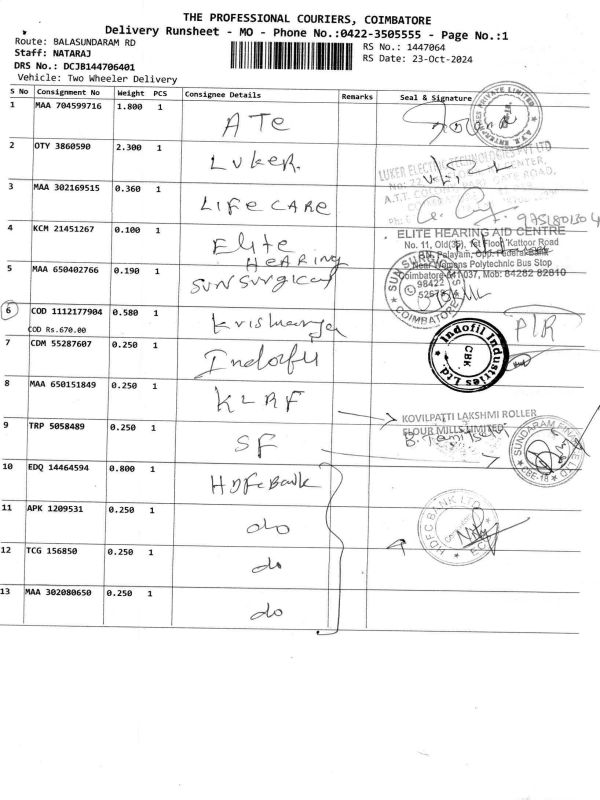 THE PROFESSIONAL COURIERS, COIMBATORE
Delivery Runsheet - MO - Phone No.:0422-3505555 - Page No.:1
Route: BALASUNDARAM RD
RS No.: 1447064
Staff: NATARAJ
RS Date: 23-Oct-2024
DRS No.: DCJB144706401
Vehicle: Two Wheeler Delivery
S No Consignment No Weight PCS Consignee Details Remarks Seal & Signature
1 MAA 704599716 1.800 1 ATE
2 OTY 3860590 2.300 1 Luker
LUKER ELECTRIC TECHNOLOGIES PVT LTD
3 MAA 302169515 0.360 1 LIFE CARE
9751801304
4 KCM 21451267 0.100 1 Elite HEARING
ELITE HEARING AID CENTRE
No. 11, Old(35), 1st Floor Kattoor Road
Near Womens Polytechnic Bus Stop
Coimbatore-641 037, Mob: 84282 82810
5 MAA 650402766 0.190 1 SUN Surgical
SUN SURGICAL
COIMBATORE
6 COD 1112177904 0.580 1
COD Rs.670.00
7 CDM 55287607 0.250 1 Indofil
Indofil Industries Ltd.
CBK
8 MAA 650151849 0.250 1 KLRF
KOVILPATTI LAKSHMI ROLLER
FLOUR MILLS LIMITED
9 TRP 5058489 0.250 1 SF
SUNDARAM FINANCE LTD
CBE-18
10 EDQ 14464594 0.800 1 HDFC Bank
HDFC BANK LTD
11 APK 1209531 0.250 1 do
12 TCG 156850 0.250 1 do
13 MAA 302080650 0.250 1 do